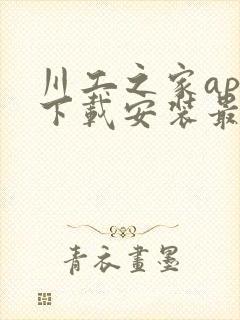 川工之家ap
下载安装最
青衣畫墨